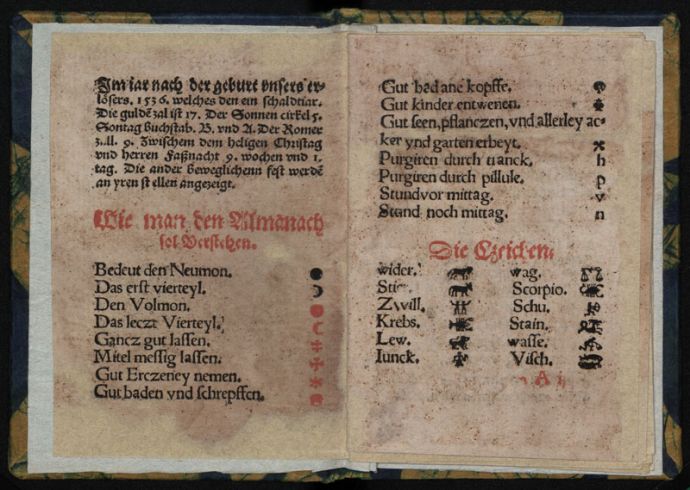 Im iar nach der geburt vnsers er-
lösers. 1536. welches den ein schaldtiar.
Die guldē zal ist 17. Der Sonnen cirkel 5.
Sontag buchstab. B. vnd A. Der Romer
z.ll. 9. Zwischem dem heligen Christag
vnd herren Faßnacht 9. wochen vnd 1.
tag. Die ander beweglichenn fest werdē
an yren stellen angezeigt.
Wie man den Almanach
sol Verstehen.
Bedeut den Neumon.
Das erst vierteyl.
Den Volmon.
Das leczt Vierteyl.
Gancz gut lassen.
Mitel messig lassen.
Gut Erczeney nemen.
Gut baden vnd schrepffen.
Gut bad ane kopffe.
Gut kinder entwenen.
Gut seen, pflanczen, vnd allerley ac-
ker vnd garten erbeyt.
Purgiren durch tranck. h
Purgiren durch pillule. p
Stund vor mittag. v
Stund noch mittag. n
Die Czeichen.
wider. wag.
Stier. Scorpio.
Zwill. Schu.
Krebs. Stain.
Lew. wasse.
Iunck. Visch.